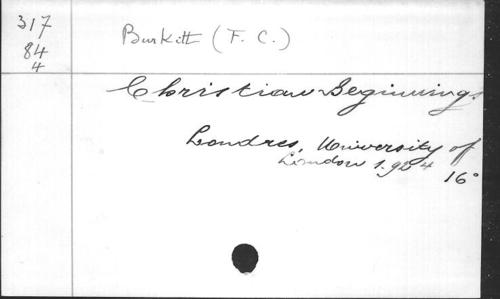 317
84
4
Burkitt (F. C.)
Christian Beginnings.
Londres, University of
London 1.924
16°